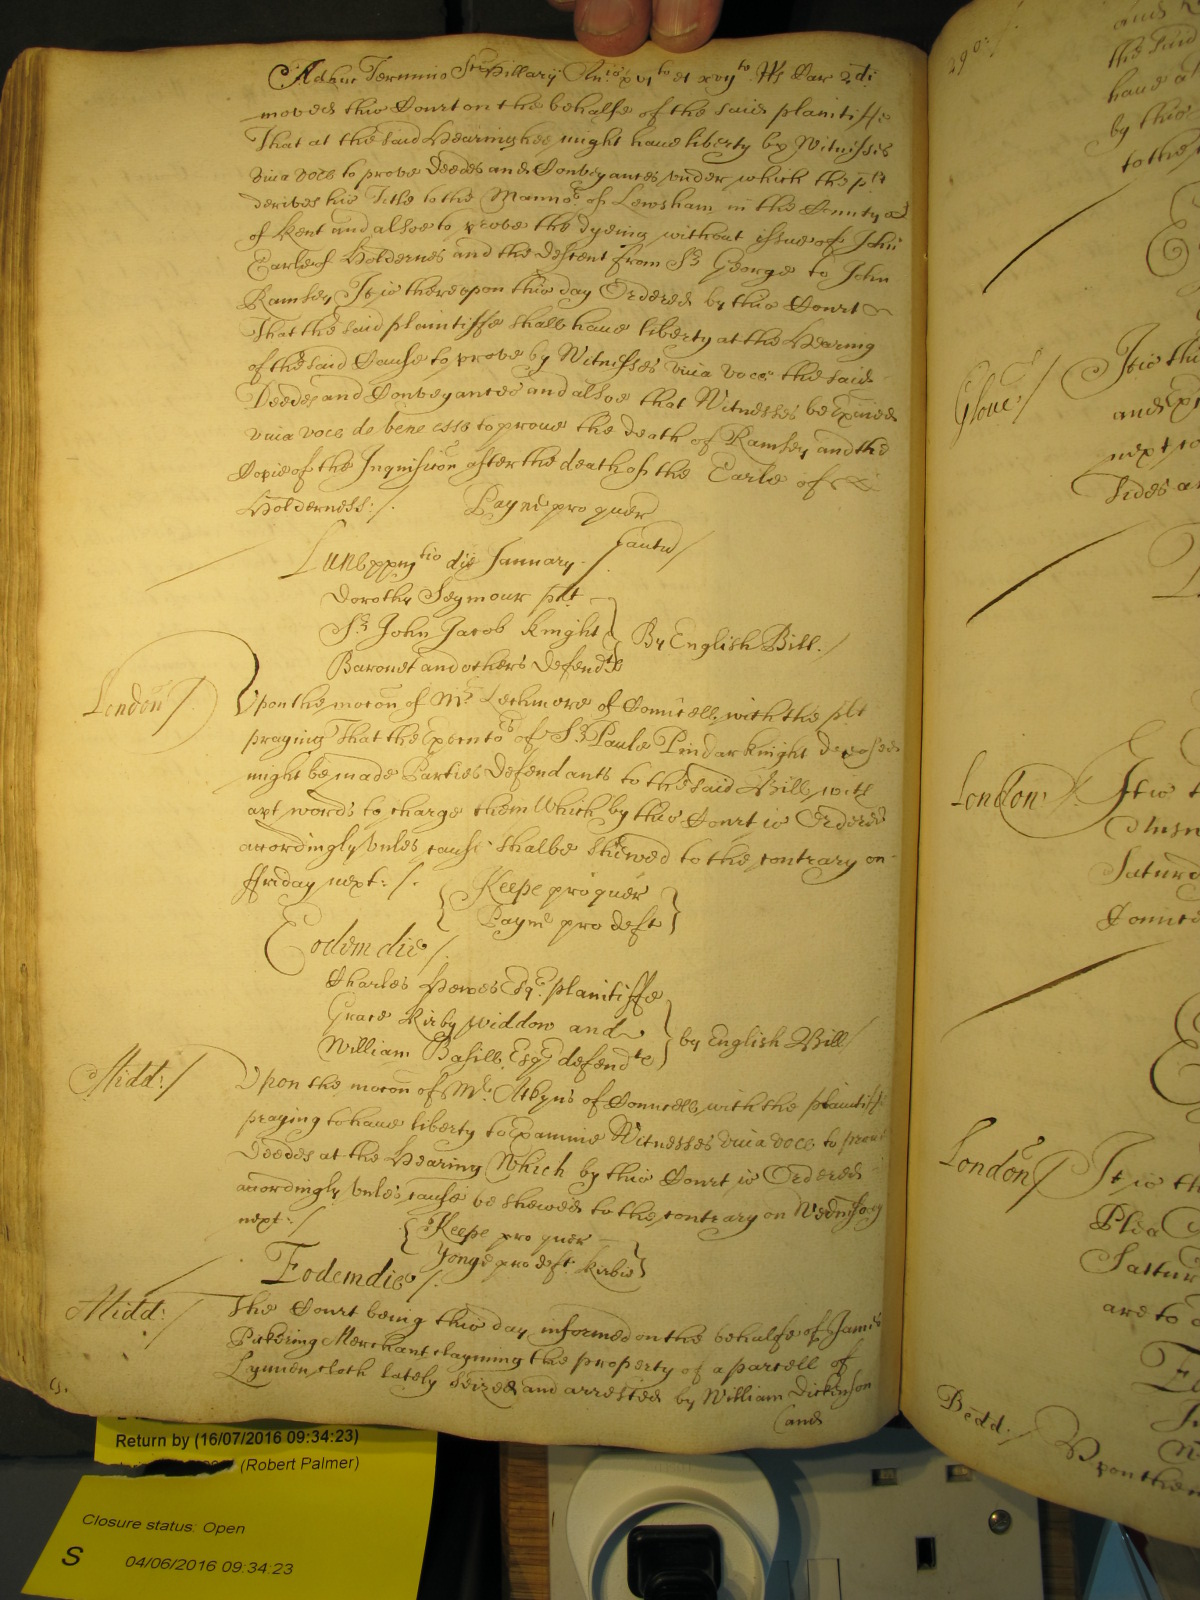 Adhuc Termino Sti Hillarij Annis xvjto et xvijto Rs Car 2di
moved this Court on the behalfe of the said plaintiffe
That at the said Hearing hee might have liberty by Witnesses
viva voce to prove Deedes and Conveyances under which the plt
derives his Title to the Manno.r of Lewsham in the County
of Kent and alsoe to prove the dyeing without issue of John
Earle of Holdernes and the descent from Sr. George to John
Ramsey It is thereupon this day Ordered by this Court
That the said plaintiffe shall have liberty at the Hearing
of the said Cause to prove by Witnesses viva voce the said
Deedes and Conveyances and alsoe that Witnesses be
viva voce de bene esse to prove the death of Ramsey and the
Copie of the Inquisicon after the death of the Earle of
Holderness:/. Payne pro quer
Lune die January
Dorothy Seymour plt
Sr. John Jacob Knight
Baronet and others defendts
By English Bill./
London /.
Upon the mocon of Mr. Lechmore of Councell with the plt
praying That the Executors of Sr. Paule Pindar Knight deceased
might be made Parties defendants to the said Bill with
apt words to charge them Which by this Court is Ordered
accordingly unles cause shalbe shewed to the contrary on
ffriday next:/.
Keepe pro quer
Payne pro deft
Eodem die/.
Charles Hewes Esqr. plaintiffe
Grace Kirby widdow and
William Basill Esqr defendts
by English Bill/
Midd:/
Upon the mocon of Mr. Atkyns of Councell with the plaintiff
praying to have liberty to Examine Witnesses viva voce to prove
Deedes at the Hearing Which by this Court is Ordered
accordingly unles cause be shewed to the contrary on Wednesday
next:/
Keepe pro quer
Yonge pro deft. Kirbie
Eodem die/.
Midd:/
The Court being this day informed on the behalfe of James
Pickering Merchant clayming the property of a parcell of
Lynnen cloth lately seized and arrested by William Dickinson
(and
290:/.
the said
have
by this
to the
Glouc:/
It is this
next
sides
London /.
It is
Saturd
London /
It is th
Plea
Sattur
are to
Bedd:/
Upon the
Return by (16/07/2016 09:34:23)
(Robert Palmer)
Closure status: Open
S 04/06/2016 09:34:23